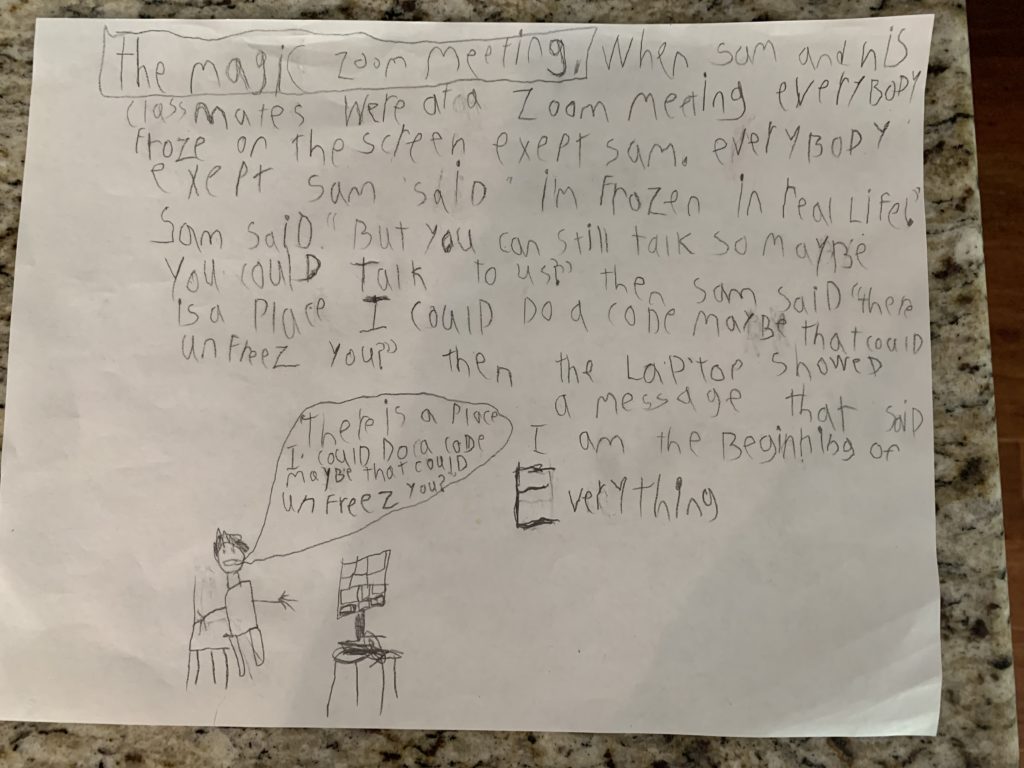 The magic zoom meeting. When sam and his
classmates were at a Zoom meeting everyBODY
froze on the screen exept sam. everyBODY
exept sam saiD "im frozen in real Life!"
Sam saiD "But you can still talk so mayBe
you coulD talk to us?" then sam saiD "there
is a Place I coulD Do a coDe mayBe that coulD
unfreez you?" then the LaPtop showeD
a message that saiD
I am the Beginning of
Everything
There is a Place
I coulD Do a coDe
mayBe that coulD
unfreez you?